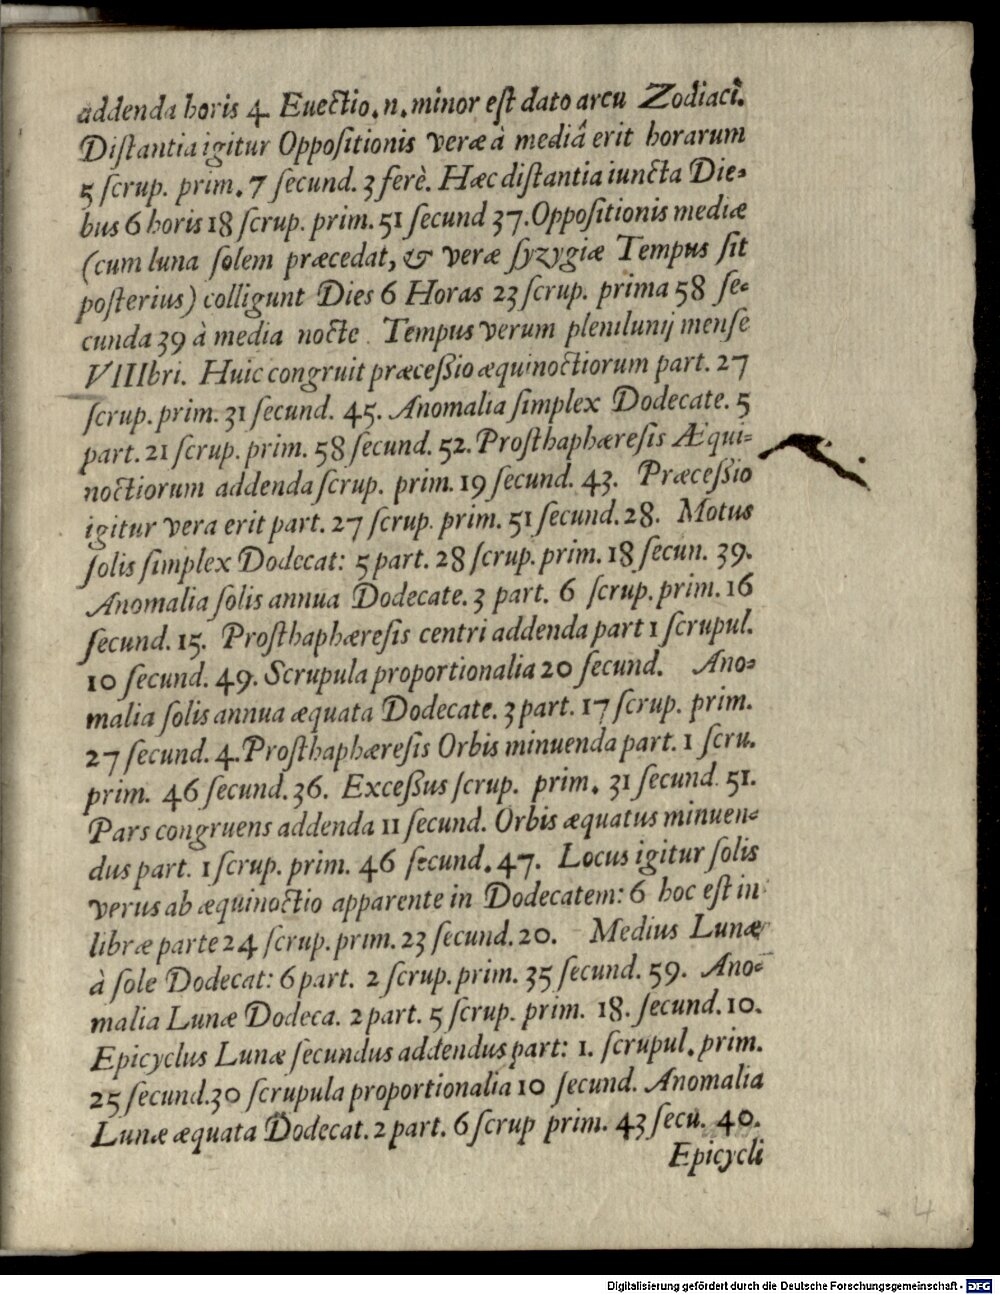 addenda horis 4. Euectio. n. minor eſt dato arcu Zodiaci.
Diſtantia igitur Oppoſitionis veræ à mediâ erit horarum
5 ſcrup. prim. 7 ſecund. 3 ferè. Hæc diſtantia iuncta Die-
bus 6 horis 18 ſcrup. prim. 51 ſecund 37. Oppoſitionis mediæ
(cum luna ſolem præcedat, & veræ ſyzygiæ Tempus ſit
poſterius) colligunt Dies 6 Horas 23 ſcrup. prima 58 ſe-
cunda 39 à media nocte. Tempus verum plenilunij menſe
VIIIbri. Huic congruit præceßio æquinoctiorum part. 27
ſcrup. prim. 31 ſecund. 45. Anomalia ſimplex Dodecate. 5
part. 21 ſcrup. prim. 58 ſecund. 52. Proſthaphæreſis Æqui-
noctiorum addenda ſcrup. prim. 19 ſecund. 43. Præceßio
igitur vera erit part. 27 ſcrup. prim. 51 ſecund. 28. Motus
ſolis ſimplex Dodecat: 5 part. 28 ſcrup. prim. 18 ſecun. 39.
Anomalia ſolis annua Dodecate. 3 part. 6 ſcrup. prim. 16
ſecund. 15. Proſthaphæreſis centri addenda part 1 ſcrupul.
10 ſecund. 49. Scrupula proportionalia 20 ſecund. Ano-
malia ſolis annua æquata Dodecate. 3 part. 17 ſcrup. prim.
27 ſecund. 4. Proſthaphæreſis Orbis minuenda part. 1 ſcru.
prim. 46 ſecund. 36. Exceßus ſcrup. prim. 31 ſecund. 51.
Pars congruens addenda 11 ſecund. Orbis æquatus minuen-
dus part. 1 ſcrup. prim. 46 ſecund. 47. Locus igitur ſolis
verus ab æquinoctio apparente in Dodecatem: 6 hoc eſt in
libræ parte 24 ſcrup. prim. 23 ſecund. 20. Medius Lunæ
à ſole Dodecat: 6 part. 2 ſcrup. prim. 35 ſecund. 59. Ano-
malia Lunæ Dodeca. 2 part. 5 ſcrup. prim. 18. ſecund. 10.
Epicyclus Lunæ ſecundus addendus part: 1. ſcrupul. prim.
25 ſecund. 30 ſcrupula proportionalia 10 ſecund. Anomalia
Lunæ æquata Dodecat. 2 part. 6 ſcrup prim. 43 ſecu. 40.
Epicycli
4
Digitalisierung gefördert durch die Deutsche Forschungsgemeinschaft - DFG